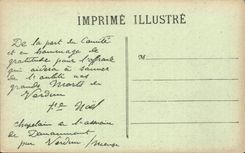 IMPRIMÉ ILLUSTRÉ
De la part du Comité
et en hommage de
gratitude pour l'offrande
qui aidera à sauver
de l'oubli nos
grands Morts de
Verdun
Noël
chapelain de l'ossuaire
de Douaumont
par Verdun / Meuse
M